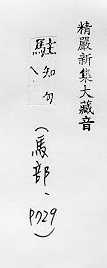 精嚴新集大藏音
駐
知句
(馬部、P729)